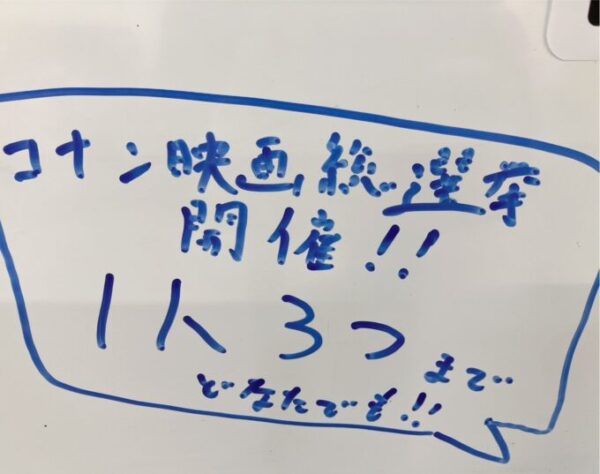 コナン映画総選挙
開催!!
1人3つまで
どなたでも!!